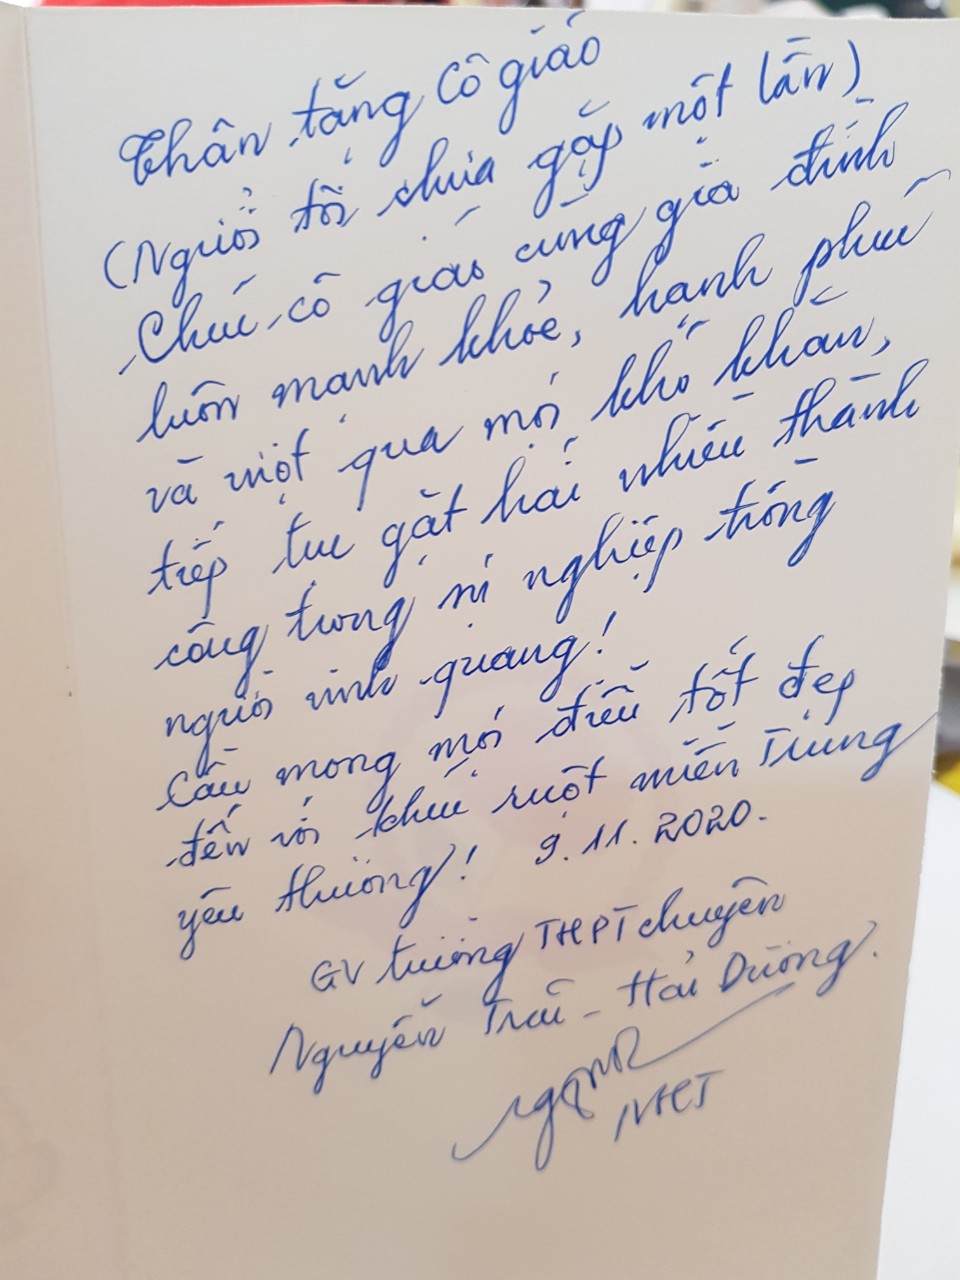 Thân tặng Cô giáo
(Người tôi chưa gặp một lần)
Chúc cô giáo cùng gia đình
luôn mạnh khỏe, hạnh phúc
và vượt qua mọi khó khăn,
tiếp tục gặt hái nhiều thành
công trong sự nghiệp trồng
người vinh quang!
Cầu mong mọi điều tốt đẹp
đến với khúc ruột miền Trung
yêu thương! 9.11.2020.
GV trường THPT chuyên
Nguyễn Trãi - Hải Dương.